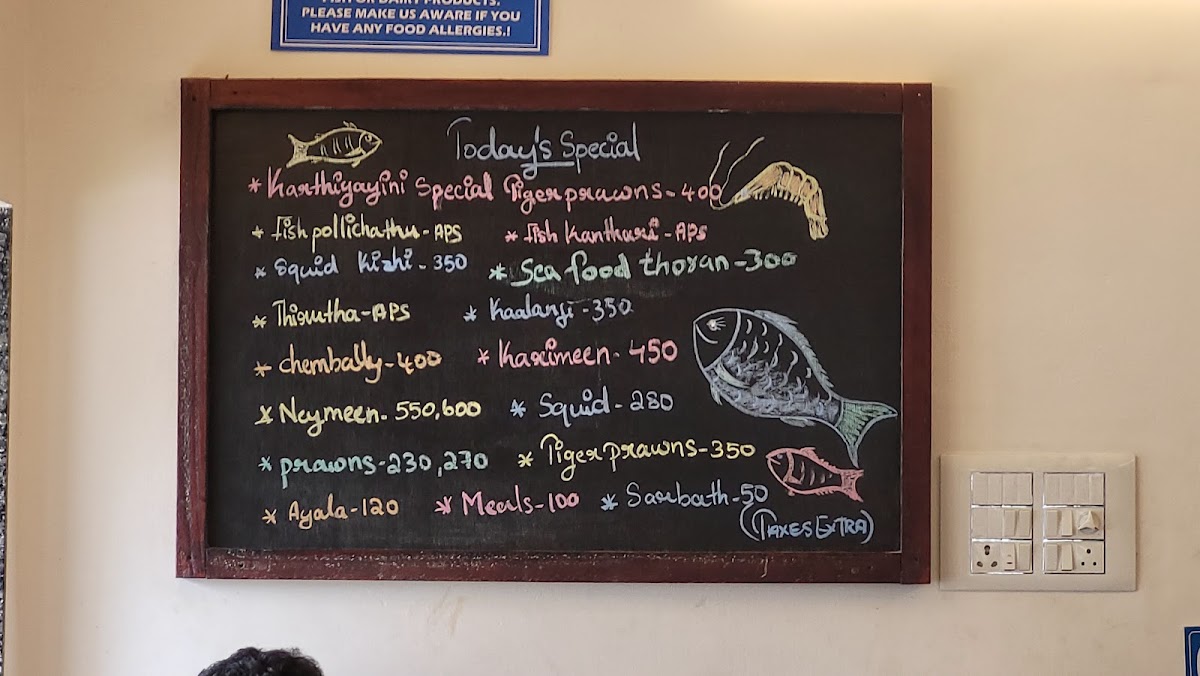 FISH OR DAIRY PRODUCTS.
PLEASE MAKE US AWARE IF YOU
HAVE ANY FOOD ALLERGIES.!
Today's Special
* Karthiyayini Special Tiger prawns - 400
* fish pollichathu - APS * fish Kanthari - APS
* Squid Kizhi - 350 * Sea food thoran - 300
* Thirutha - APS * Kaalanji - 350
* chembally - 400 * Karimeen - 450
* Neymeen - 550,600 * Squid - 280
* prawns - 230,270 * Tiger prawns - 350
* Ayala - 120 * Meals - 100 * Sarbath - 50
(TAXES EXTRA)